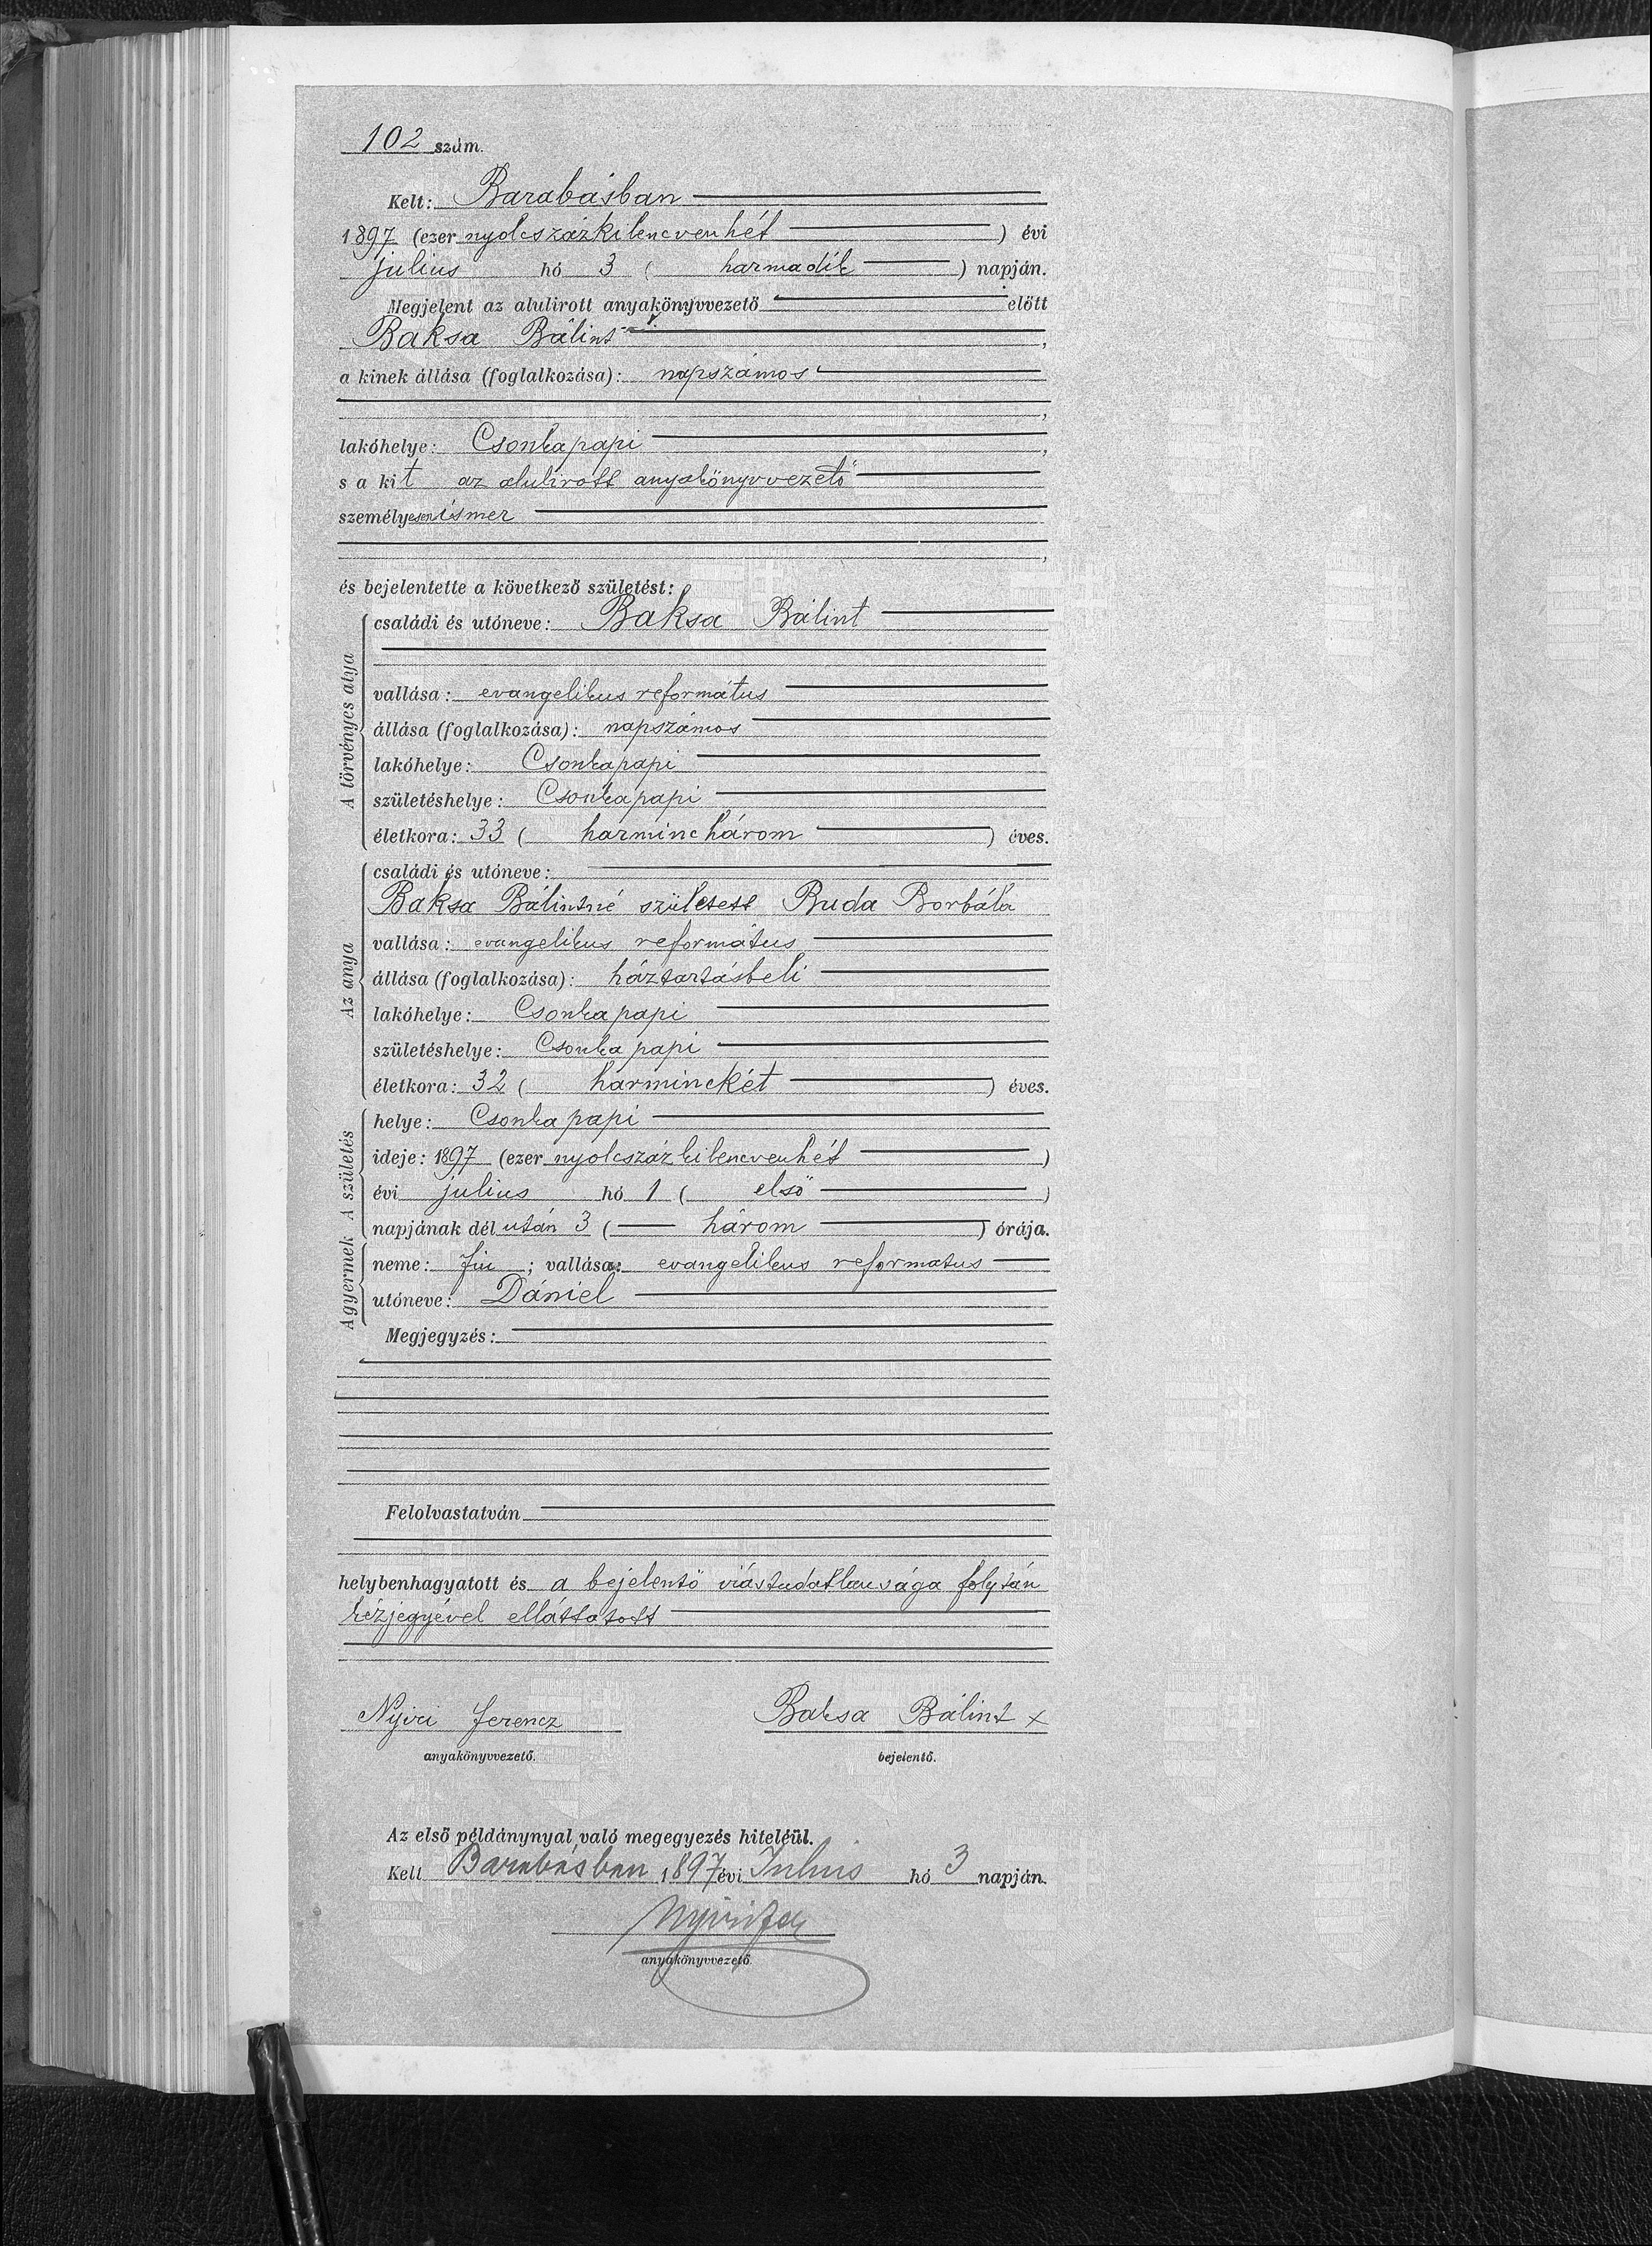 102 szám.
Kelt: Barabásban
1897 (ezer nyolcszázkilencvenhét ) évi
julius hó 3 ( harmadik ) napján.
Megjelent az alulirott anyakönyvvezető előtt
Baksa Bálint ,
a kinek állása (foglalkozása): napszámos
,
lakóhelye: Csonkapapi ,
s a kit az alulirott anyakönyvvezető
személyesen ismer
,
és bejelentette a következő születést:
A törvényes atya
családi és utóneve: Baksa Bálint
vallása: evangelikus református
állása (foglalkozása): napszámos
lakóhelye: Csonkapapi
születéshelye: Csonkapapi
életkora: 33 ( harminchárom ) éves.
Az anya
családi és utóneve:
Baksa Bálintné született Buda Borbála
vallása: evangelikus református
állása (foglalkozása): háztartásbeli
lakóhelye: Csonkapapi
születéshelye: Csonkapapi
életkora: 32 ( harminckét ) éves.
A születés
helye: Csonkapapi
ideje: 1897 (ezer nyolcszázkilencvenhét )
évi julius hó 1 ( első )
napjának dél után 3 ( három ) órája.
A gyermek
neme: fiu ; vallása: evangelikus reformatus
utóneve: Dániel
Megjegyzés:
Felolvastatván
helybenhagyatott és a bejelentő irástudatlansága folytán
kézjegyével elláttatott
Nyiri Ferencz Baksa Bálint x
anyakönyvvezető. bejelentő.
Az első példánynyal való megegyezés hiteléül.
Kelt Barabásban 1897 évi Julius hó 3 napján.
anyakönyvvezető.